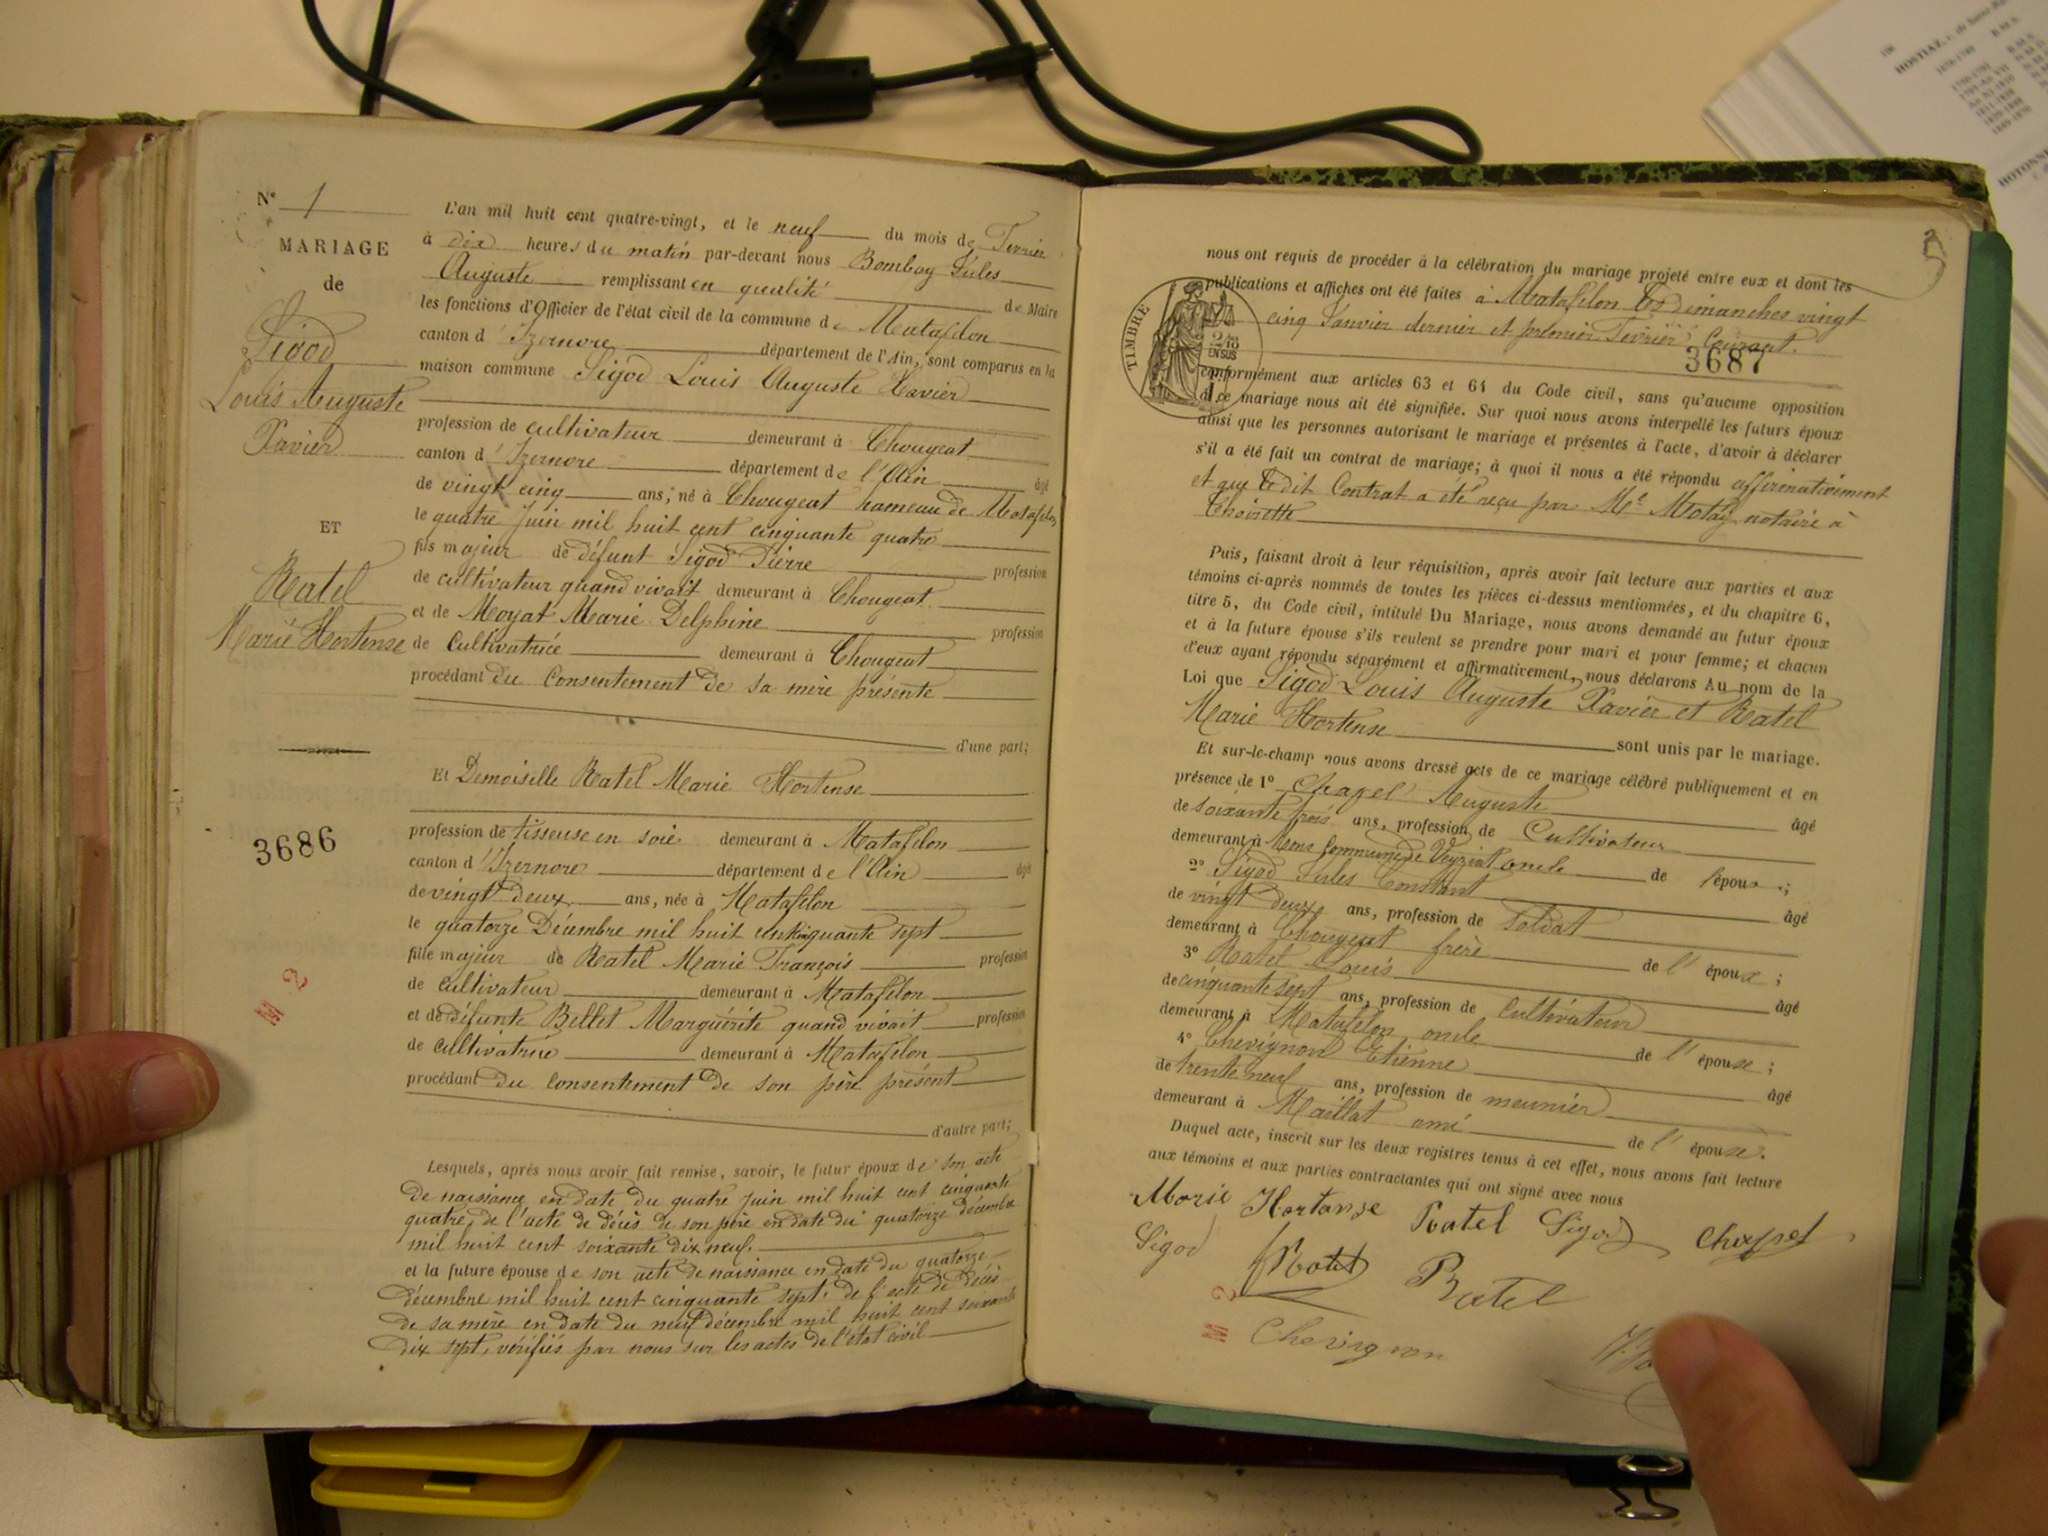 N° 1
MARIAGE
de
Sigod
Louis Auguste
Xavier
ET
Ratel
Marie Hortense
3686
M 2
L'an mil huit cent quatre-vingt, et le neuf du mois de Fevrier
à dix heures du matin par-devant nous Bombay Jules
Auguste remplissant en qualité de Maire
les fonctions d'Officier de l'état civil de la commune de Matafelon
canton d'Izernore département de l'Ain, sont comparus en la
maison commune Sigod Louis Auguste Xavier
profession de cultivateur demeurant à Chougeat
canton d'Izernore département de l'Ain âgé
de vingt cinq ans, né à Chougeat hameau de Matafelon
le quatre Juin mil huit cent cinquante quatre
fils majeur de défunt Sigod Pierre profession
de cultivateur quand vivait demeurant à Chougeat
et de Moyat Marie Delphine profession
de Cultivatrice demeurant à Chougeat
procédant du Consentement de sa mère présente
d'une part;
Et Demoiselle Ratel Marie Hortense
profession de tisseuse en soie demeurant à Matafelon
canton d'Izernore département de l'Ain âgé
de vingt deux ans, née à Matafelon
le quatorze Décembre mil huit cent cinquante sept
fille majeur de Ratel Marie François profession
de cultivateur demeurant à Matafelon
et de défunte Bellet Marguérite quand vivait profession
de cultivatrice demeurant à Matafelon
procédant du consentement de son père présent
d'autre part;
Lesquels, après nous avoir fait remise, savoir, le futur époux de son acte
de naissance en date du quatre Juin mil huit cent cinquante
quatre, de l'acte de décès de son père en date du quatorze décembre
mil huit cent soixante dix neuf.
et la future épouse de son acte de naissance en date du quatorze
décembre mil huit cent cinquante sept, de l'acte de décès
de sa mère en date du neuf décembre mil huit cent soixante
dix sept, vérifiés par nous sur les actes de l'état civil
5
nous ont requis de procéder à la célébration du mariage projeté entre eux et dont les
publications et affiches ont été faites à Matafelon les dimanches vingt
cinq Janvier dernier et premier Fevrier Courant.
TIMBRE
EN SUS
3687
conformément aux articles 63 et 64 du Code civil, sans qu'aucune opposition
à ce mariage nous ait été signifiée. Sur quoi nous avons interpellé les futurs époux
ainsi que les personnes autorisant le mariage et présentes à l'acte, d'avoir à déclarer
s'il a été fait un contrat de mariage; à quoi il nous a été répondu affirmativement
et que le dit Contrat a été reçu par Me notaire à
Thoirette
Puis, faisant droit à leur réquisition, après avoir fait lecture aux parties et aux
témoins ci-après nommés de toutes les pièces ci-dessus mentionnées, et du chapitre 6,
titre 5, du Code civil, intitulé Du Mariage, nous avons demandé au futur époux
et à la future épouse s'ils veulent se prendre pour mari et pour femme; et chacun
d'eux ayant répondu séparément et affirmativement, nous déclarons Au nom de la
Loi que Sigod Louis Auguste Xavier et Ratel
Marie Hortense sont unis par le mariage.
Et sur-le-champ nous avons dressé acts de ce mariage célébré publiquement et en
présence de 1° Chapel Auguste âgé
de soixante trois ans, profession de Cultivateur
demeurant à Mons Commune de Veyziat oncle de l'époux;
2° Sigod Jules Constant âgé
de vingt deux ans, profession de Soldat
demeurant à Chougeat frère de l'époux;
3° Ratel Louis âgé
de cinquante sept ans, profession de cultivateur
demeurant à Matafelon oncle de l'épouse;
4° Chevignon Etienne âgé
de trente neuf ans, profession de meunier
demeurant à Maillat ami de l'épouse.
Duquel acte, inscrit sur les deux registres tenus à cet effet, nous avons fait lecture
aux témoins et aux parties contractantes qui ont signé avec nous
Marie Hortanse Ratel Sigod Chapel
Sigod Ratel Ratel
M 2
Chevignon
HOSTIAZ